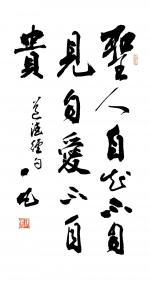 聖人自知不自
見自愛不自
貴
道德經句